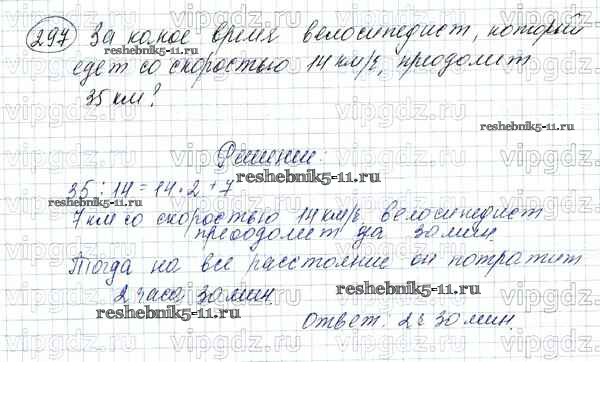 297 За какое время велосипедист, который
едет со скоростью 14 км/ч, преодолит
35 км?
Решение:
35 : 14 = 14 · 2 + 7
7 км со скоростью 14 км/ч велосипедист
преодолит за 30 мин.
Тогда на все расстояние он потратит
2 часа 30 мин.
Ответ. 2 ч 30 мин.
reshebnik5-11.ru
reshebnik5-11.ru
reshebnik5-11.ru
reshebnik5-11.ru
reshebnik5-11.ru
reshebnik5-11.ru
vipgdz.ru